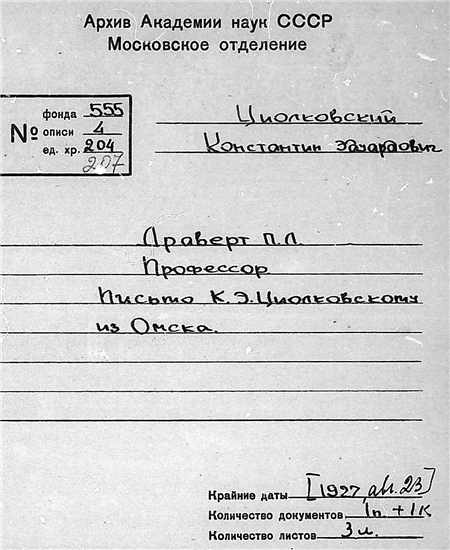 Архив Академии наук СССР
Московское отделение
№
фонда 555
описи 4
ед. хр. 204
207
Циолковский
Константин Эдуардович
Драверт П.Л.
Профессор
Письмо К.Э.Циолковскому
из Омска.
Крайние даты [1927, авг. 23]
Количество документов 1п. + 1к
Количество листов 3 л.